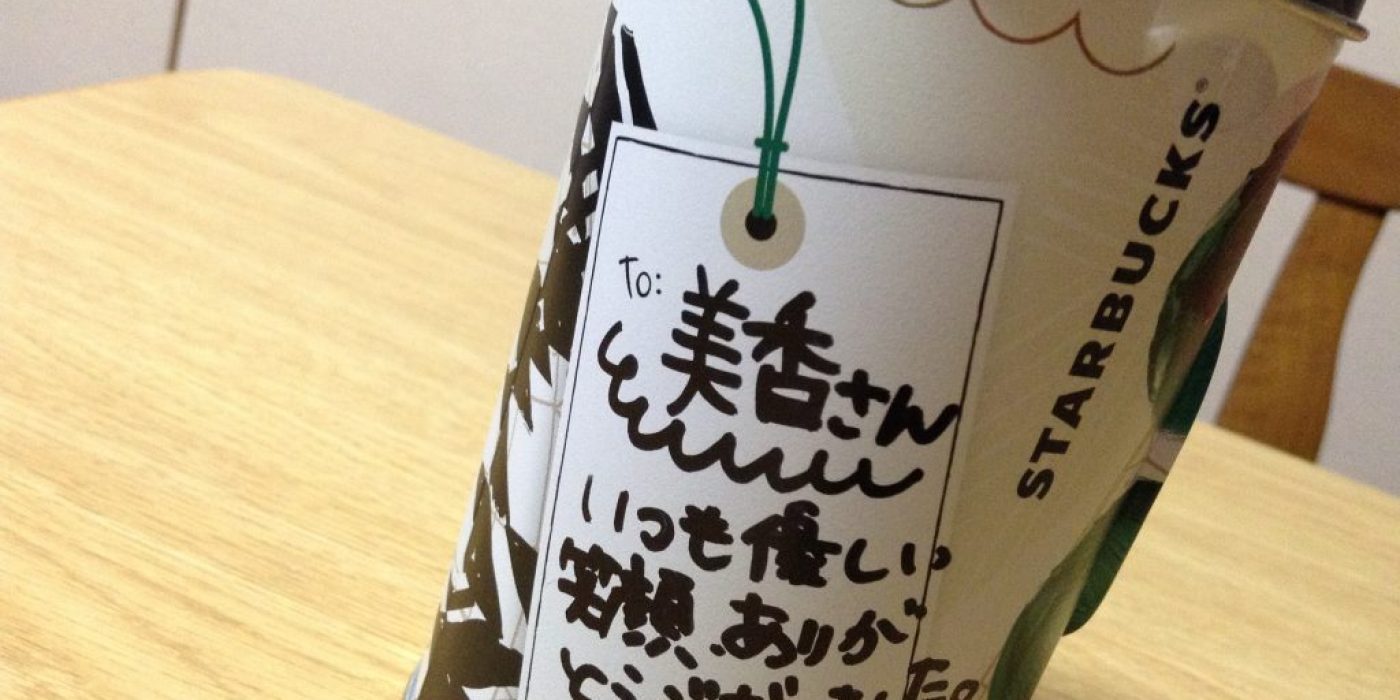 STARBUCKS®
To:
美香さん
いつも優しい
笑顔、ありが
とうござい